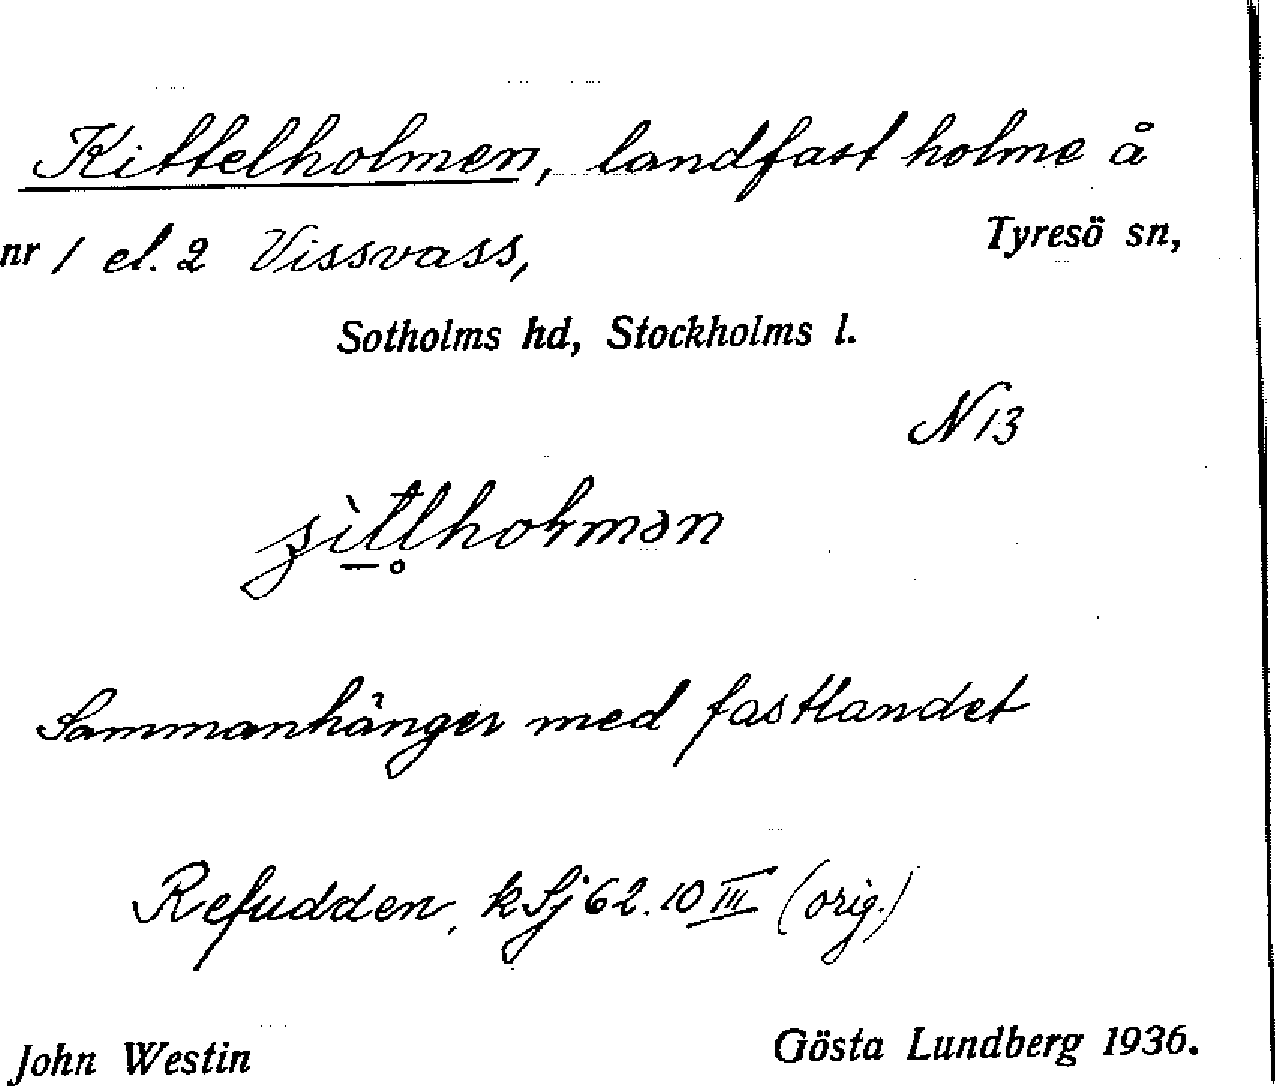 Kittelholmen, landfast holme å
nr 1 el. 2 Vissvass, Tyresö sn,
Sotholms hd, Stockholms l.
N 13
Sammanhänger med fastlandet
Refudden, k Sj 62.10 III (orig.)
John Westin Gösta Lundberg 1936.